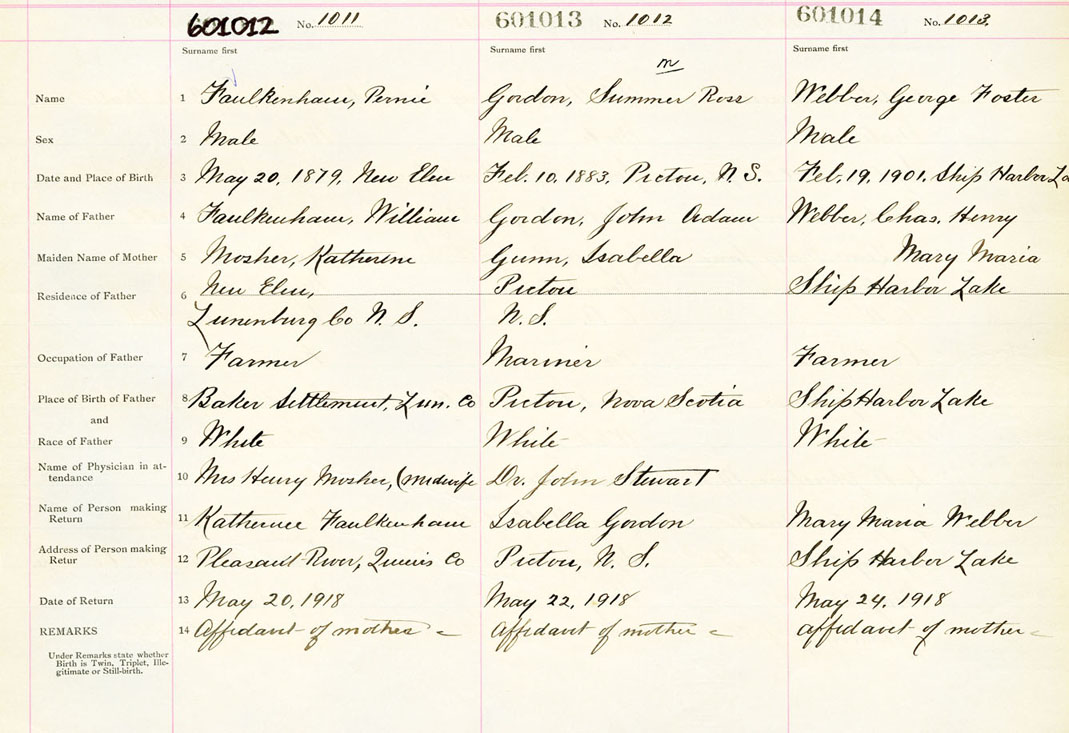 601012 No. 1011 601013 No. 1012 601014 No. 1013
Surname first Surname first Surname first
m
Name 1 Faulkenham, Pernie Gordon, Summer Ross Webber, George Foster
Sex 2 Male Male Male
Date and Place of Birth 3 May 20, 1879, New Elm Feb. 10, 1883, Pictou, N.S. Feb. 19, 1901, Ship Harbor La
Name of Father 4 Faulkenham, William Gordon, John Adam Webber, Chas, Henry
Maiden Name of Mother 5 Mosher, Katherine Gunn, Isabella Mary Maria
Residence of Father 6 New Elm, Pictou Ship Harbor Lake
Lunenburg Co N. S. N. S.
Occupation of Father 7 Farmer Mariner Farmer
Place of Birth of Father 8 Baker Settlement, Lun. Co Pictou, Nova Scotia Ship Harbor Lake
and
Race of Father 9 White White White
Name of Physician in at-
tendance 10 Mrs Henry Mosher, (midwife Dr. John Stewart
Name of Person making
Return 11 Katherine Faulkenham Isabella Gordon Mary Maria Webber
Address of Person making
Retur 12 Pleasant River, Queens Co Pictou, N. S. Ship Harbor Lake
Date of Return 13 May 20, 1918 May 22, 1918 May 24, 1918
REMARKS 14 Affidavit of mother Affidavit of mother Affidavit of mother
Under Remarks state whether
Birth is Twin, Triplet, Ille-
gitimate or Still-birth.